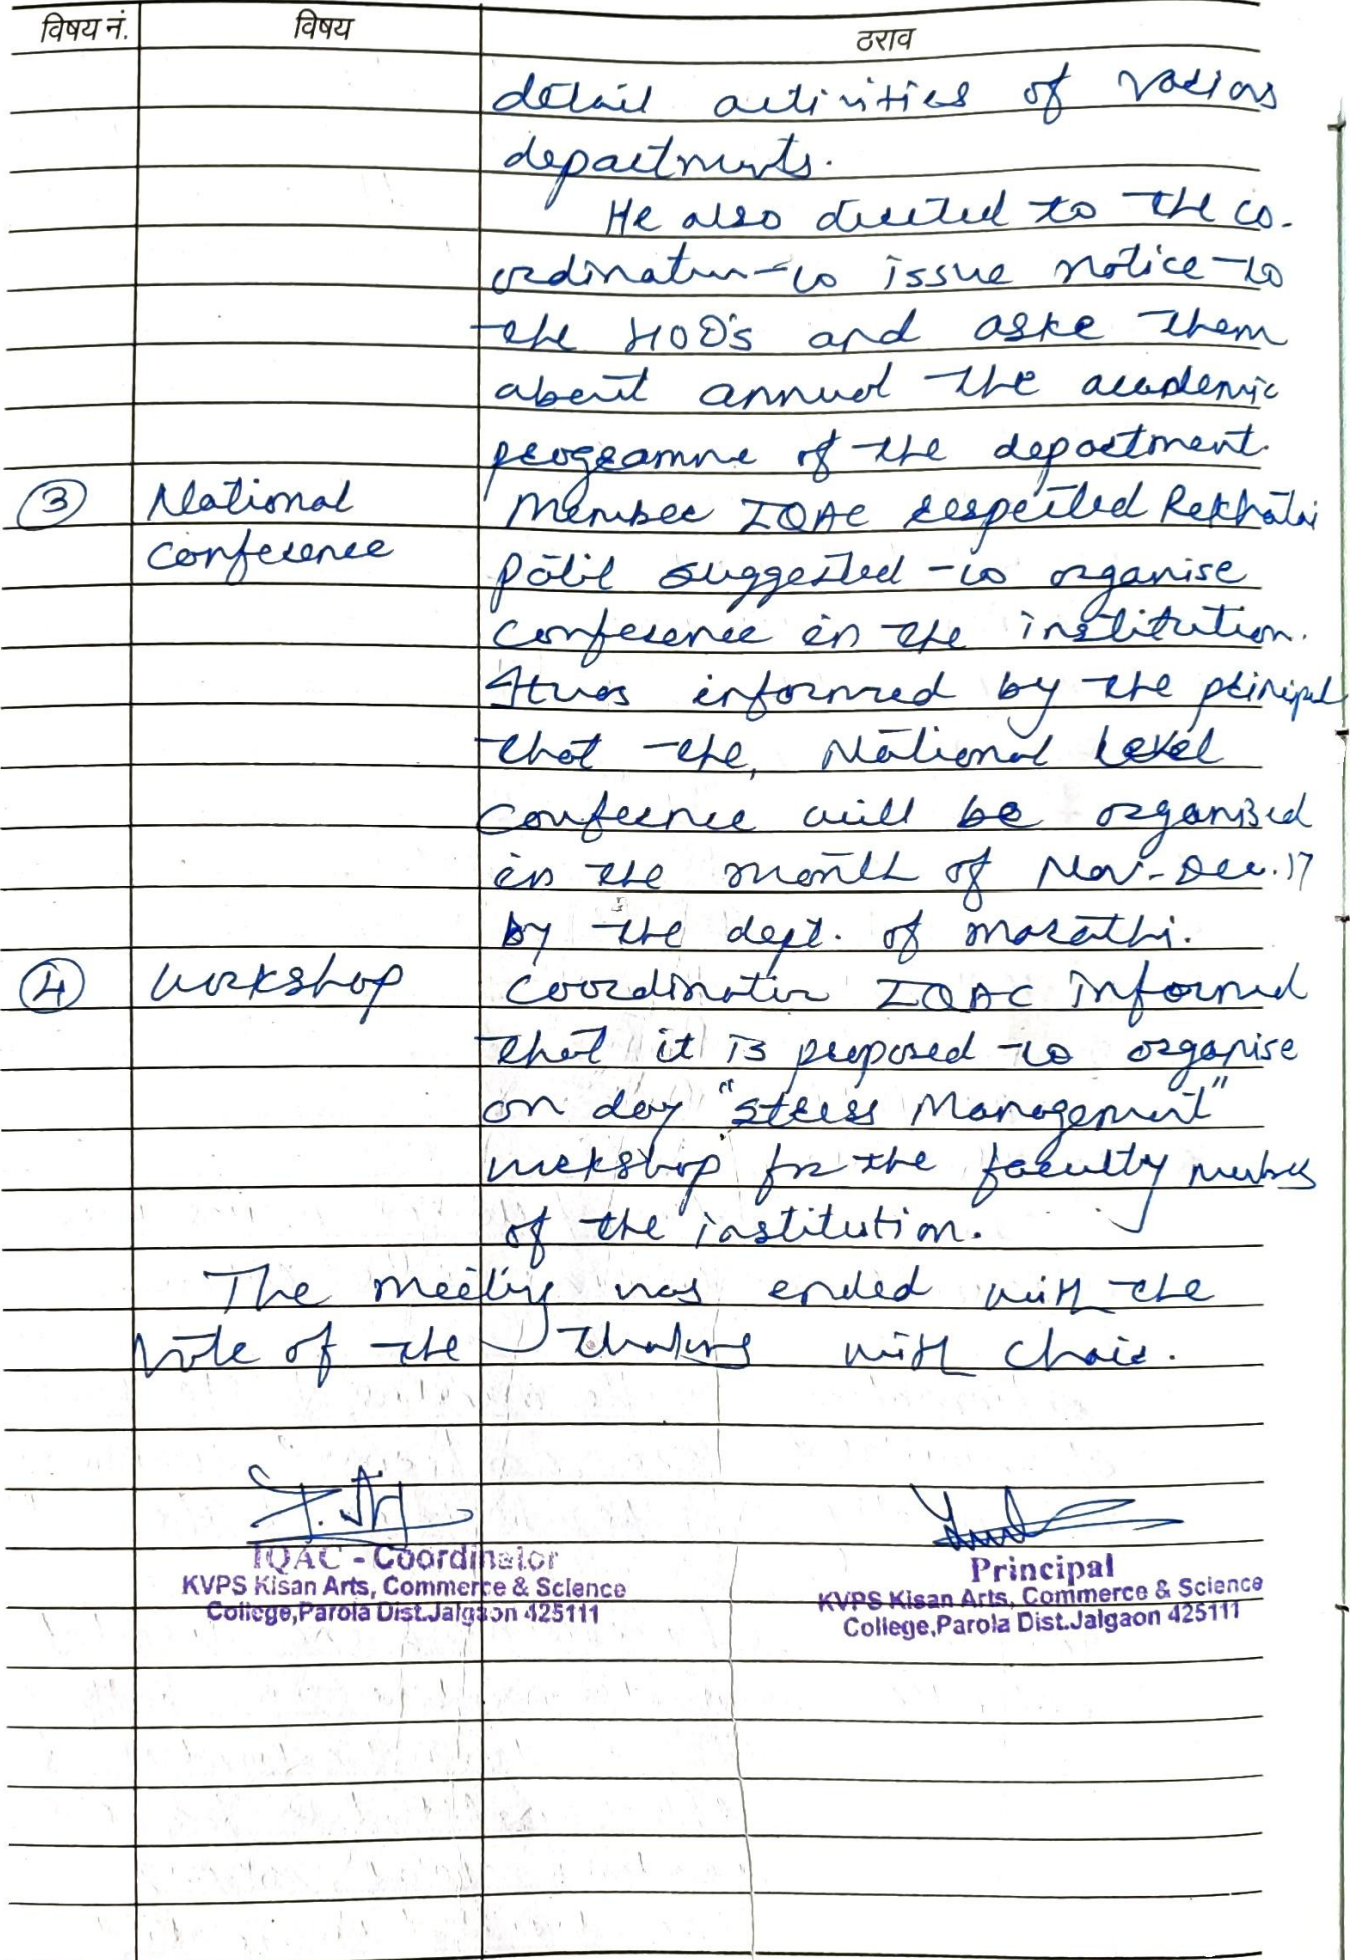 विषय नं. विषय ठराव
detail activities of various
departments.
He also directed to the co-
ordinator to issue notice to
the HOD's and aske them
about annual the academic
programme of the department.
③ National Member IQAC respected Rekhatai
Conference Patil suggested to organise
conference in the institution.
It was informed by the principal
that the, National Level
conference will be organised
in the month of Nov-Dec. 17
by the dept. of Marathi.
④ Workshop Coordinator IQAC informed
that it is proposed to organise
on day "Stress Management"
workshop for the faculty members
of the institution.
The meeting was ended with the
Vote of the thanks with chair.
IQAC - Coordinator
KVPS Kisan Arts, Commerce & Science
College,Parola Dist.Jalgaon 425111
Principal
KVPS Kisan Arts, Commerce & Science
College,Parola Dist.Jalgaon 425111